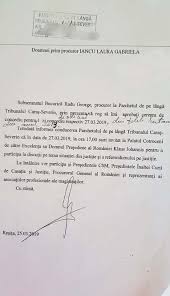 Doamnei prim procuror IANCU LAURA GABRIELA
Subsemnatul Bucurici Radu George, procuror la Parchetul de pe lângă
Tribunalul Caraș-Severin, prin prezenta vă rog să îmi aprobați cererea de
concediu pentru 27.03.2019,
Totodată informez conducerea Parchetului de pe lângă Tribunalul Caraș-
Severin că la data de 27.03.2019, la ora 17,00 sunt invitat la Palatul Cotroceni
de către Excelența sa Domnul Președinte al României Klaus Iohannis pentru a
participa la discuții pe tema situației din justiție și a referendumului pe justiție.
La întâlnire vor participa și Președintele CSM, Președintele Înaltei Curți
de Casație și Justiție, Procurorul General al României și reprezentanți ai
asociațiilor profesionale ale magistraților.
Cu stimă,
Reșița, 25.03.2019